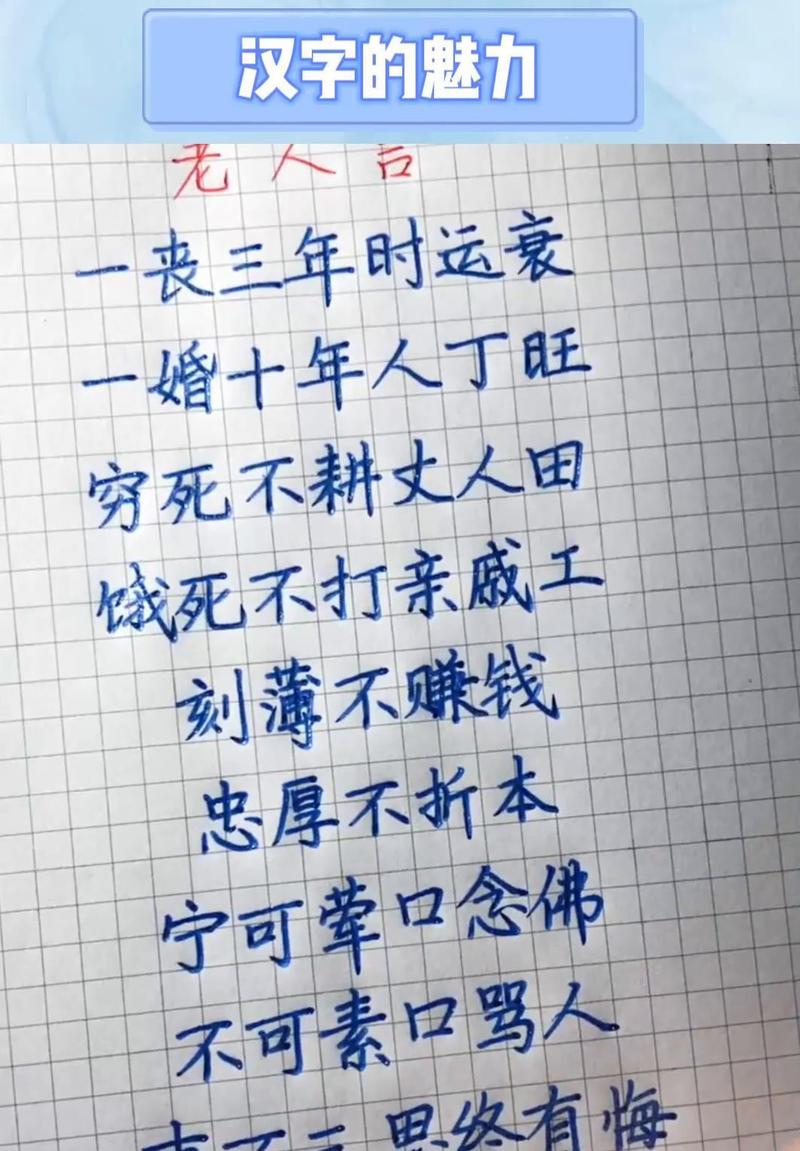 汉字的魅力
老人言
一丧三年时运衰
一婚十年人丁旺
穷死不耕丈人田
饿死不打亲戚工
刻薄不赚钱
忠厚不折本
宁可荤口念佛
不可素口骂人
思终有悔